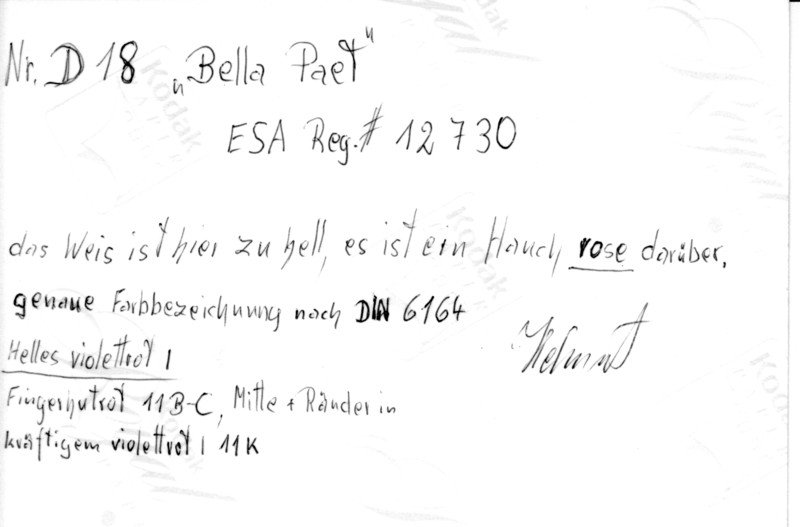 Nr. D 18 „Bella Paet"
ESA Reg.# 12 730
das Weis ist hier zu hell, es ist ein Hauch rose darüber,
genaue Farbbezeichnung nach DIN 6164
Helmut
Helles violettrot |
Fingerhutrot 11B-C, Mitte + Ränder in
kräftigem violettrot | 11K
Kodak
Kodak
Kodak
Kodak